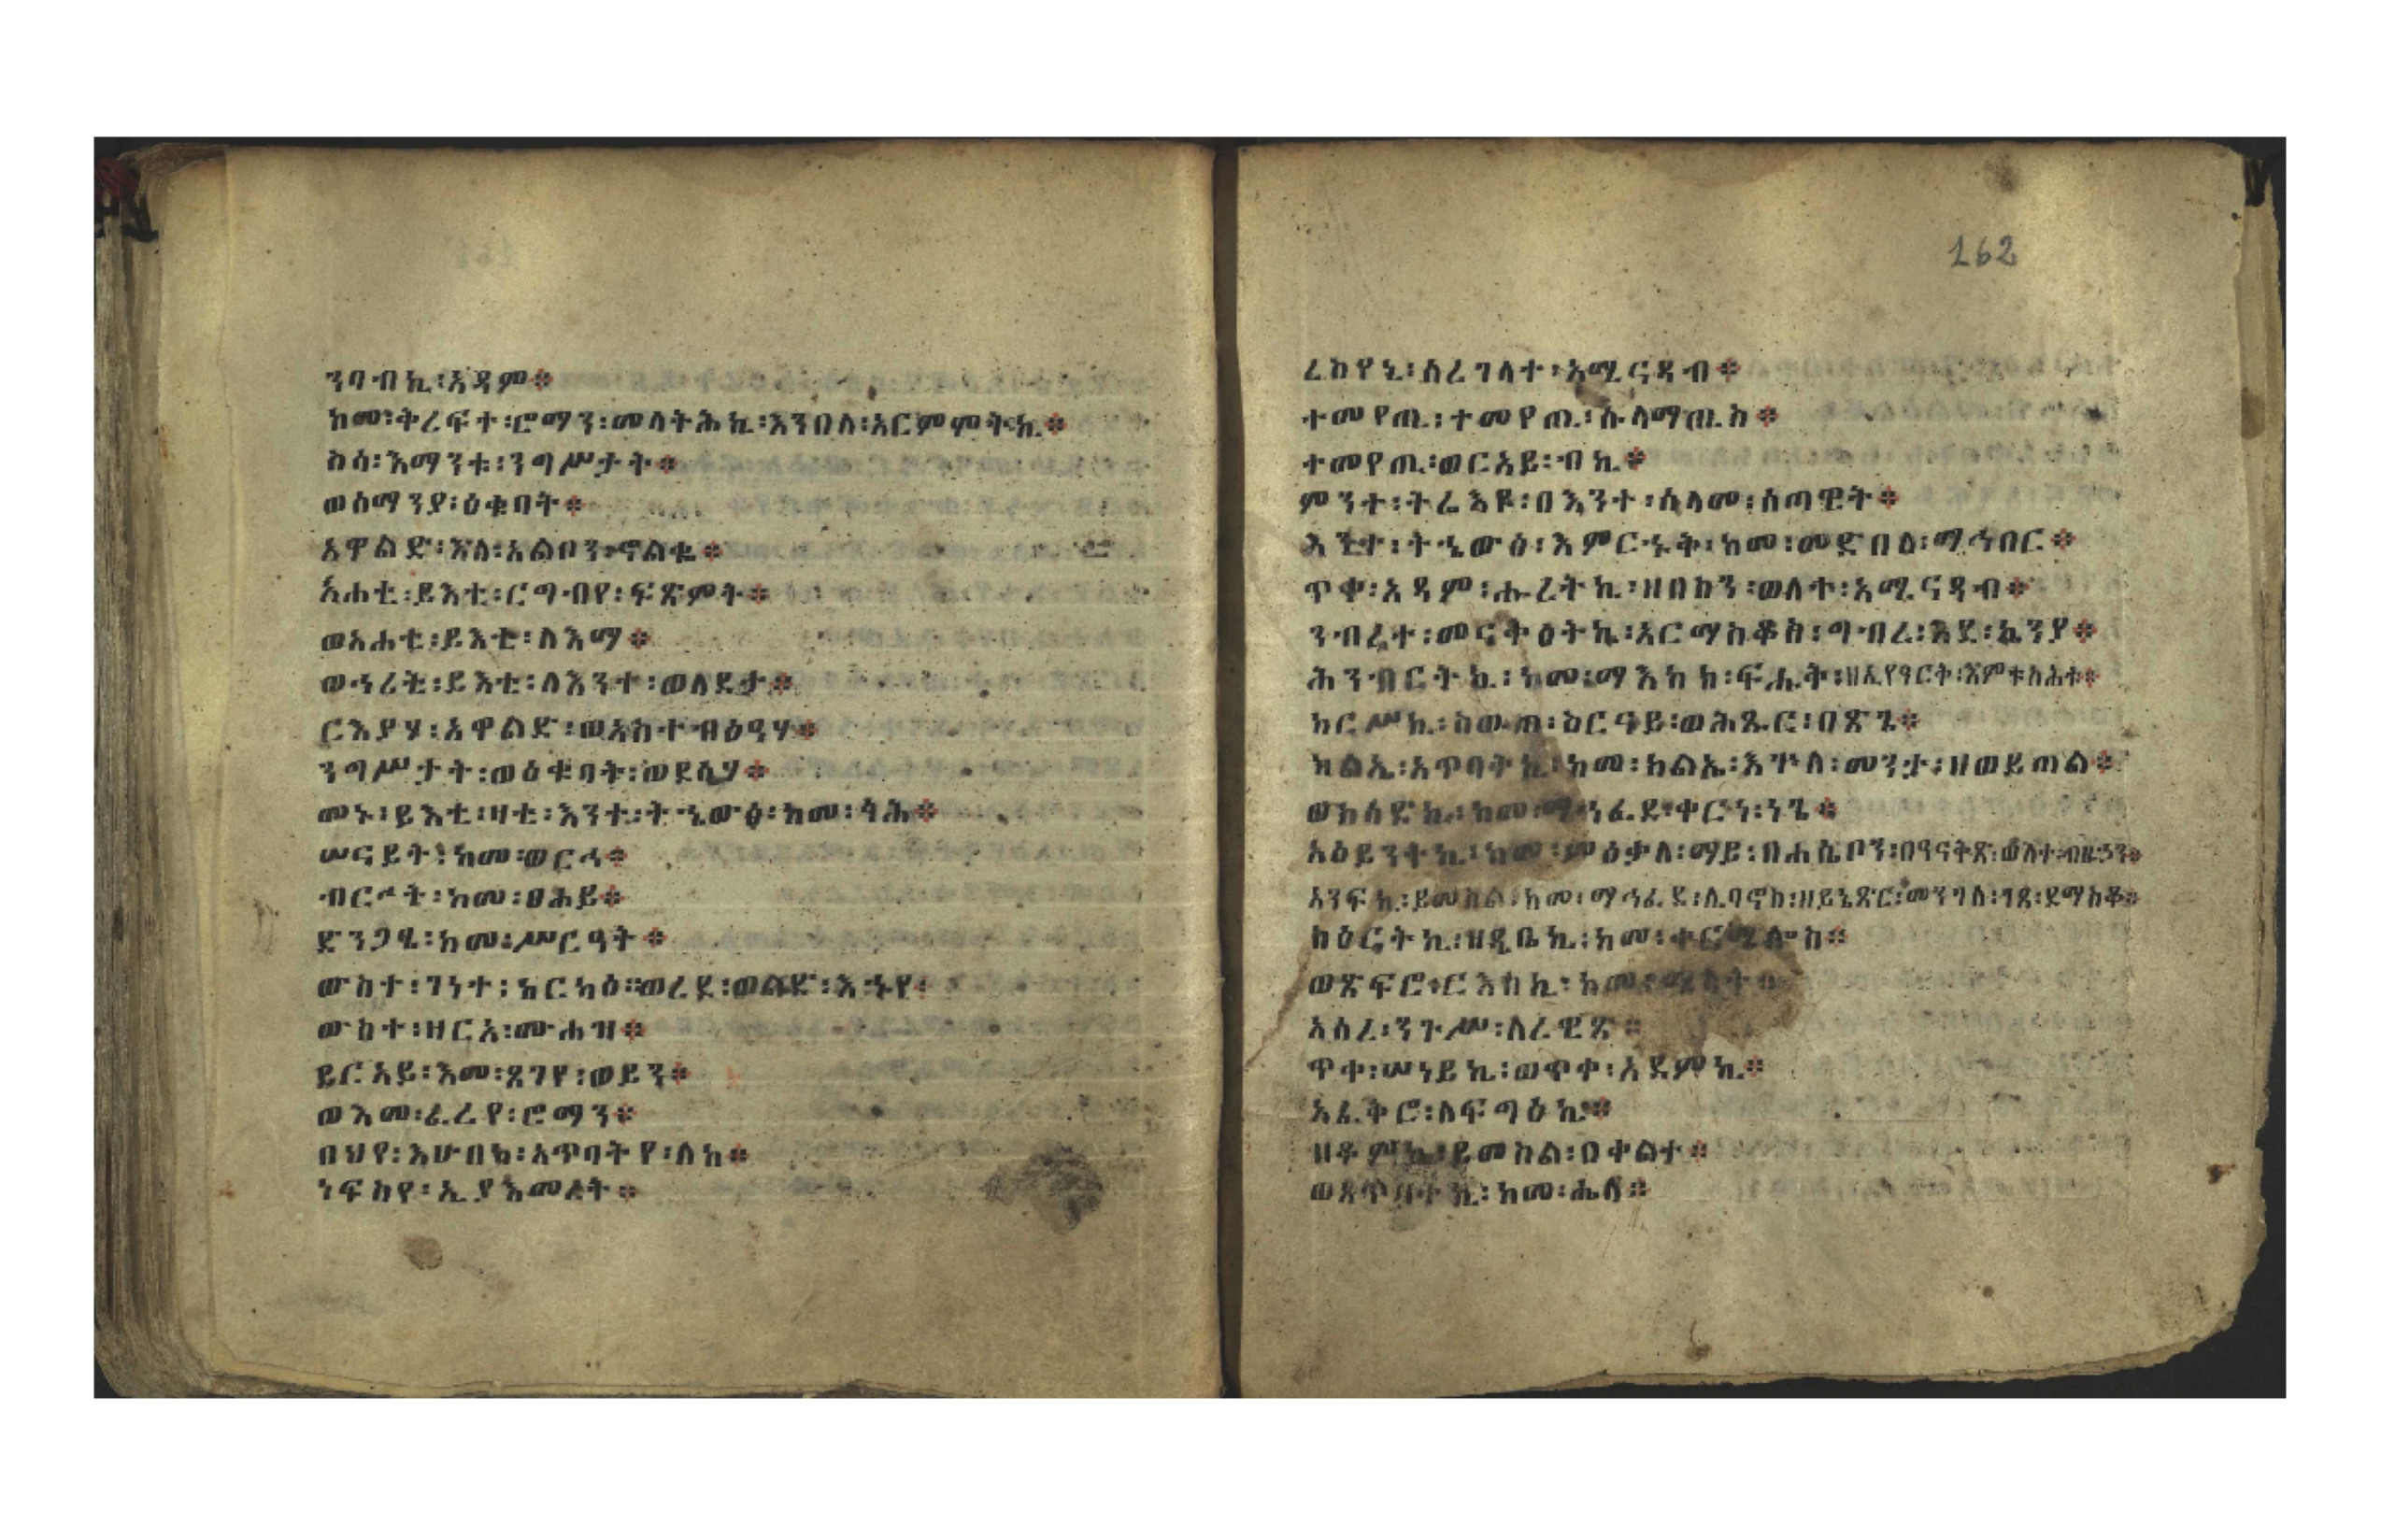 ንባብኪ፡አዳም።
ከመ፡ቅረፍተ፡ሮማን፡መላትሕኪ፡እንበለ፡አርምሞትኪ።
ስሳ፡እማንቱ፡ንግሥታት።
ወሰማንያ፡ዕቁባት።
አዋልድ፡እለ፡አልቦን፡ኆልቈ።
አሐቲ፡ይእቲ፡ርግብየ፡ፍጽምት።
ወአሐቲ፡ይእቲ፡ለእማ።
ወኅሪት፡ይእቲ፡ለእንተ፡ወለደታ።
ርእያሃ፡አዋልድ፡ወአስተብፅዓሃ።
ንግሥታት፡ወዕቁባት፡ወደሳሃ።
መኑ፡ይእቲ፡ዛቲ፡እንተ፡ትኄውፅ፡ከመ፡ጎሕ።
ሠናይት፡ከመ፡ወርኅ።
ብርህት፡ከመ፡ፀሕይ።
ድንጋፄ፡ከመ፡ሥርዓት።
ውስተ፡ገነተ፡ከርካዕ፡ወረደ፡ወልድ፡እኁየ፡
ውስተ፡ዘርአ፡ሙሐዝ።
ይርአይ፡እመ፡ጸገየ፡ወይን።
ወእመ፡ፈረየ፡ሮማን።
በህየ፡እሁበከ፡አጥባትየ፡ለከ።
ነፍስየ፡ኢያእመረት።
162
ረሰየኒ፡ሰረገላተ፡አሚናዳብ።
ተመየጢ፡ተመየጢ፡ሱላማጢስ።
ተመየጢ፡ወርአይ፡ብኪ።
ምንተ፡ትሬእዩ፡በእንተ፡ሰላመ፡ሰጣዊት።
እንተ፡ትኄውፅ፡እምርኁቅ፡ከመ፡መድበለ፡ማኅበር።
ጥቀ፡አዳም፡ሑረትኪ፡ዘበከን፡ወለተ፡አሚናዳብ።
ንብረተ፡መናትዕትኪ፡አርማስቆስ፡ግብረ፡እደ፡ኬንያ።
ሕንብርትኪ፡ከመ፡ማእከክ፡ፍሒት፡ዘኢየዓርቅ፡እምቱስሕቱ።
ከርሥኪ፡ከውጠ፡ስርዓይ፡ወሕጹር፡በጽጌ።
ክልኤ፡አጥባትኪ፡ከመ፡ክልኤ፡እጕለ፡መንታ፡ዘወይጠል።
ወክሳድኪ፡ከመ፡ማኅፈደ፡ቀርነ፡ነጌ።
አዕይንትኪ፡ከመ፡ምዕቃለ፡ማይ፡በሐሴቦን፡በዓናቅጸ፡ወለተ፡ብዙኃን።
አንፍኪ፡ይመስል፡ከመ፡ማኅፈደ፡ሊባኖስ፡ዘይኔጽር፡መንገለ፡ገጸ፡ደማስቆ።
ስዕርትኪ፡ዘዲቤኪ፡ከመ፡ቀርሜሎስ።
ወጽፍሮ፡ርእስኪ፡ከመ፡ሜላት።
አሰረ፡ንጉሥ፡ለረዊጽ።
ጥቀ፡ሠነይኪ፡ወጥቀ፡አደምኪ።
አፈቅሮ፡ለፍግዕኪ።
ዘቆምኪ፡ይመስል፡በቀልተ።
ወአጥባትኪ፡ከመ፡ሔለ።